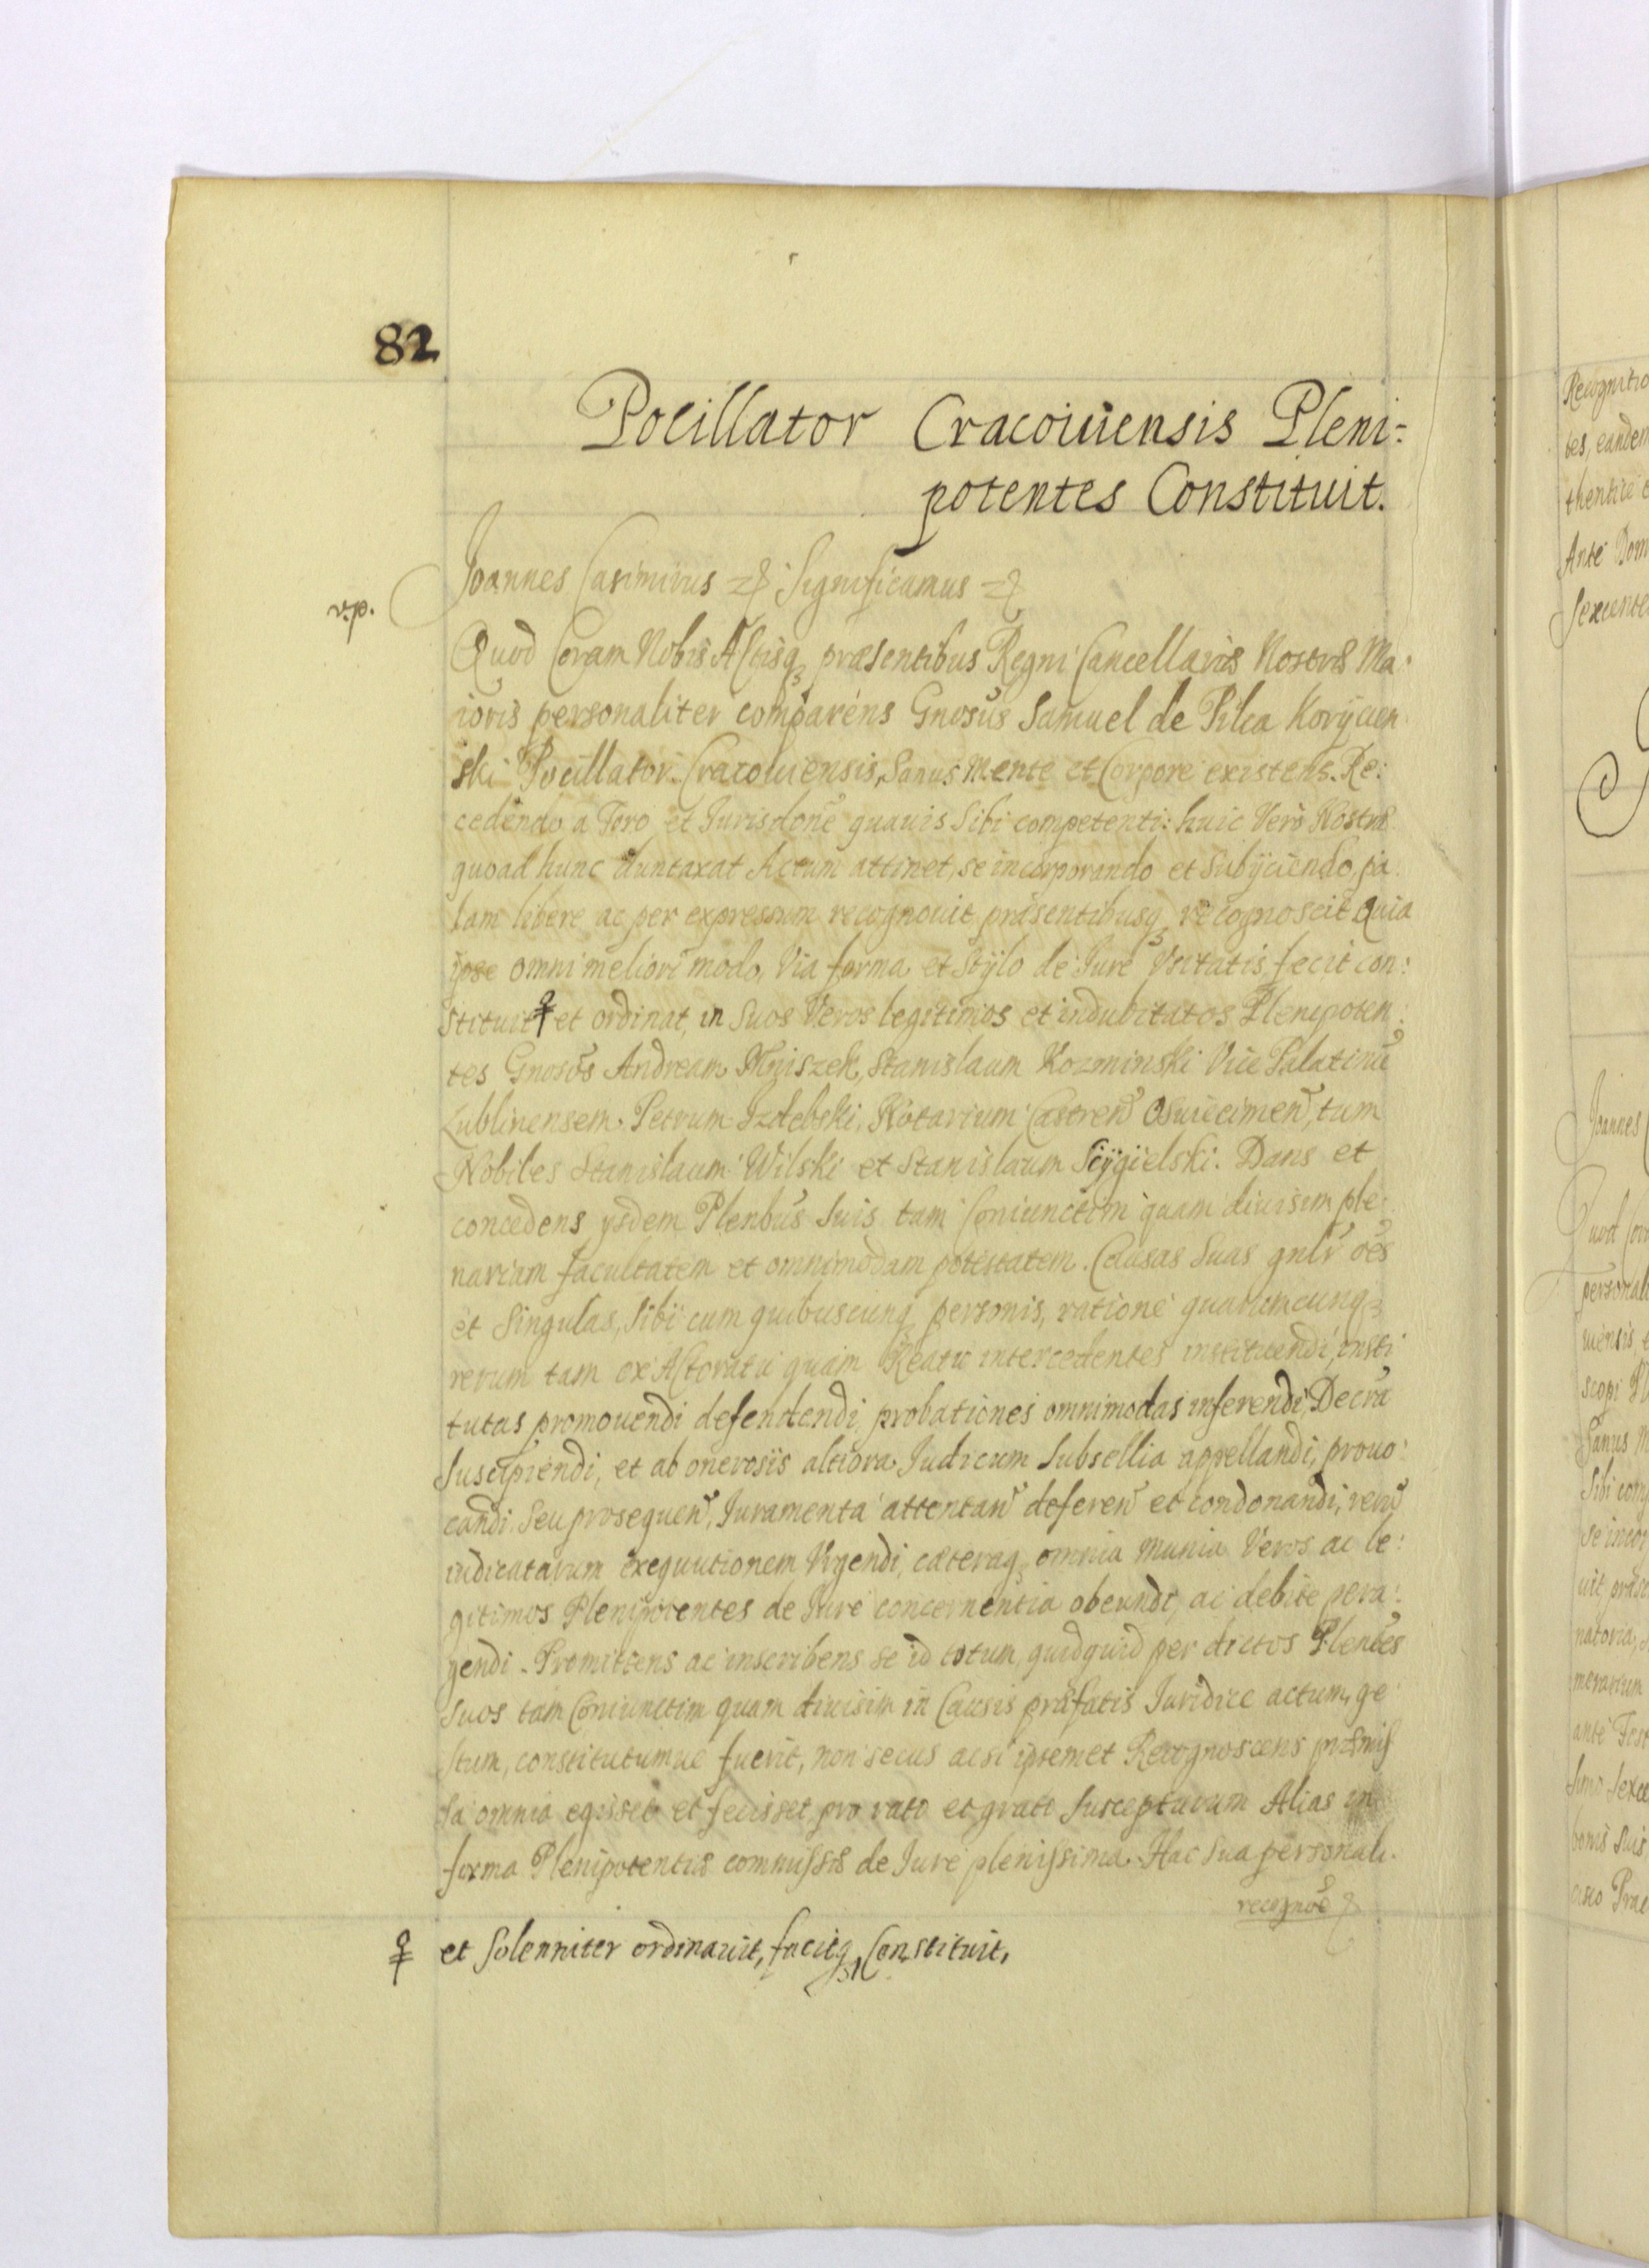 82
Pocillator Cracouiensis Pleni:
potentes Constituit.
Joannes Casimirus Significamus
v.p.
Quod Coram Nobis Actisq præsentibus Regni Cancellariæ Nostræ Ma:
ioris personaliter comparens Gnosus Samuel de Pilca Koryciń
ski Pocillator Cracouiensis, Sanus Mente et Corpore existens. Re:
cedendo a Foro et Jurisdone quauis Sibi competenti: huic Vero Nostræ
quoad hunc duntaxat Actum attinet, se incorporando et Subijciendo, pa
lam libere ac per expressum recognouit præsentibusq recognoscit Quia
ipse omni meliori modo, Via forma et Stylo de Jure Vsitatis fecit con:
stituit ♀ et ordinat, in Suos Veros legitimos et indubitatos Plenipoten:
tes Gnosos Andream Mniszek, Stanislaum Kozminski Vice Palatinū
Lublinensem. Petrum Izdebski, Notarium Castren Osuiecimen, tum
Nobiles Stanislaum Wilski et Stanislaum Scygielski. Dans et
concedens ysdem Plenbus Suis tam Coniunctim quam diuisim ple:
nariam facultatem et omnimodam potestatem. Causas Suas gnlr oes
et Singulas, Sibi cum quibuscunq personis, ratione quarumcunq
rerum tam ex Actoratu quam Reatu intercedentes instituendi, insti
tutas promouendi defendendi, probationes omnimodas inferendi, Decra
Suscipiendi, et ab onerosis altiora Judicum Subsellia appellandi, prouo:
candi. Seu prosequen, Juramenta attentan deferen et condonandi, reru
iudicatarum exequutionem Vrgendi, cæteraq omnia munia Veros ac le:
gitimos Plenipotentes de Jure concernentia obeundi, ac debite pera:
gendi. Promittens ac inscribens se id totum, quidquid per dictos Plentes
Suos tam Coniunctim quam diuisim in Causis præfatis Juridice actum, ge
stum, constitutumue fuerit, non secus acsi ipsemet Recognoscens præmiſ
sa omnia egisset et fecisset, pro rato et grato Suscepturum Alias in
forma Plenipotentiæ commissæ de Jure plenissima. Hac Sua personali.
recogno͠e
♀ et Solenniter ordinauit, facitq, Constituit,